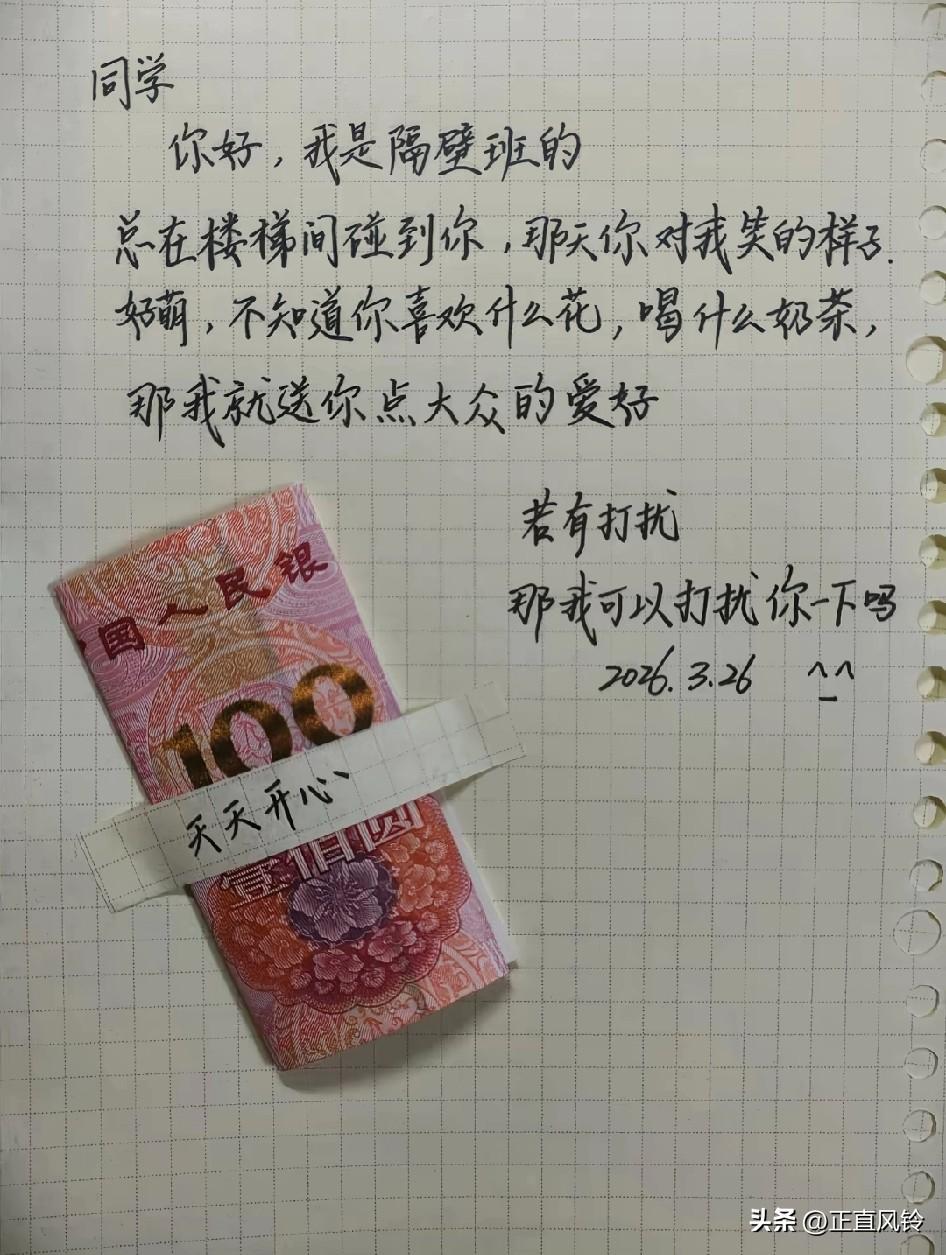 同学
你好，我是隔壁班的
总在楼梯间碰到你，那天你对我笑的样子.
好萌，不知道你喜欢什么花，喝什么奶茶，
那我就送你点大众的爱好
若有打扰
那我可以打扰你一下吗
2026.3.26 ^_^
国人民银
100
天天开心
壹佰圆
头条 @正直风铃